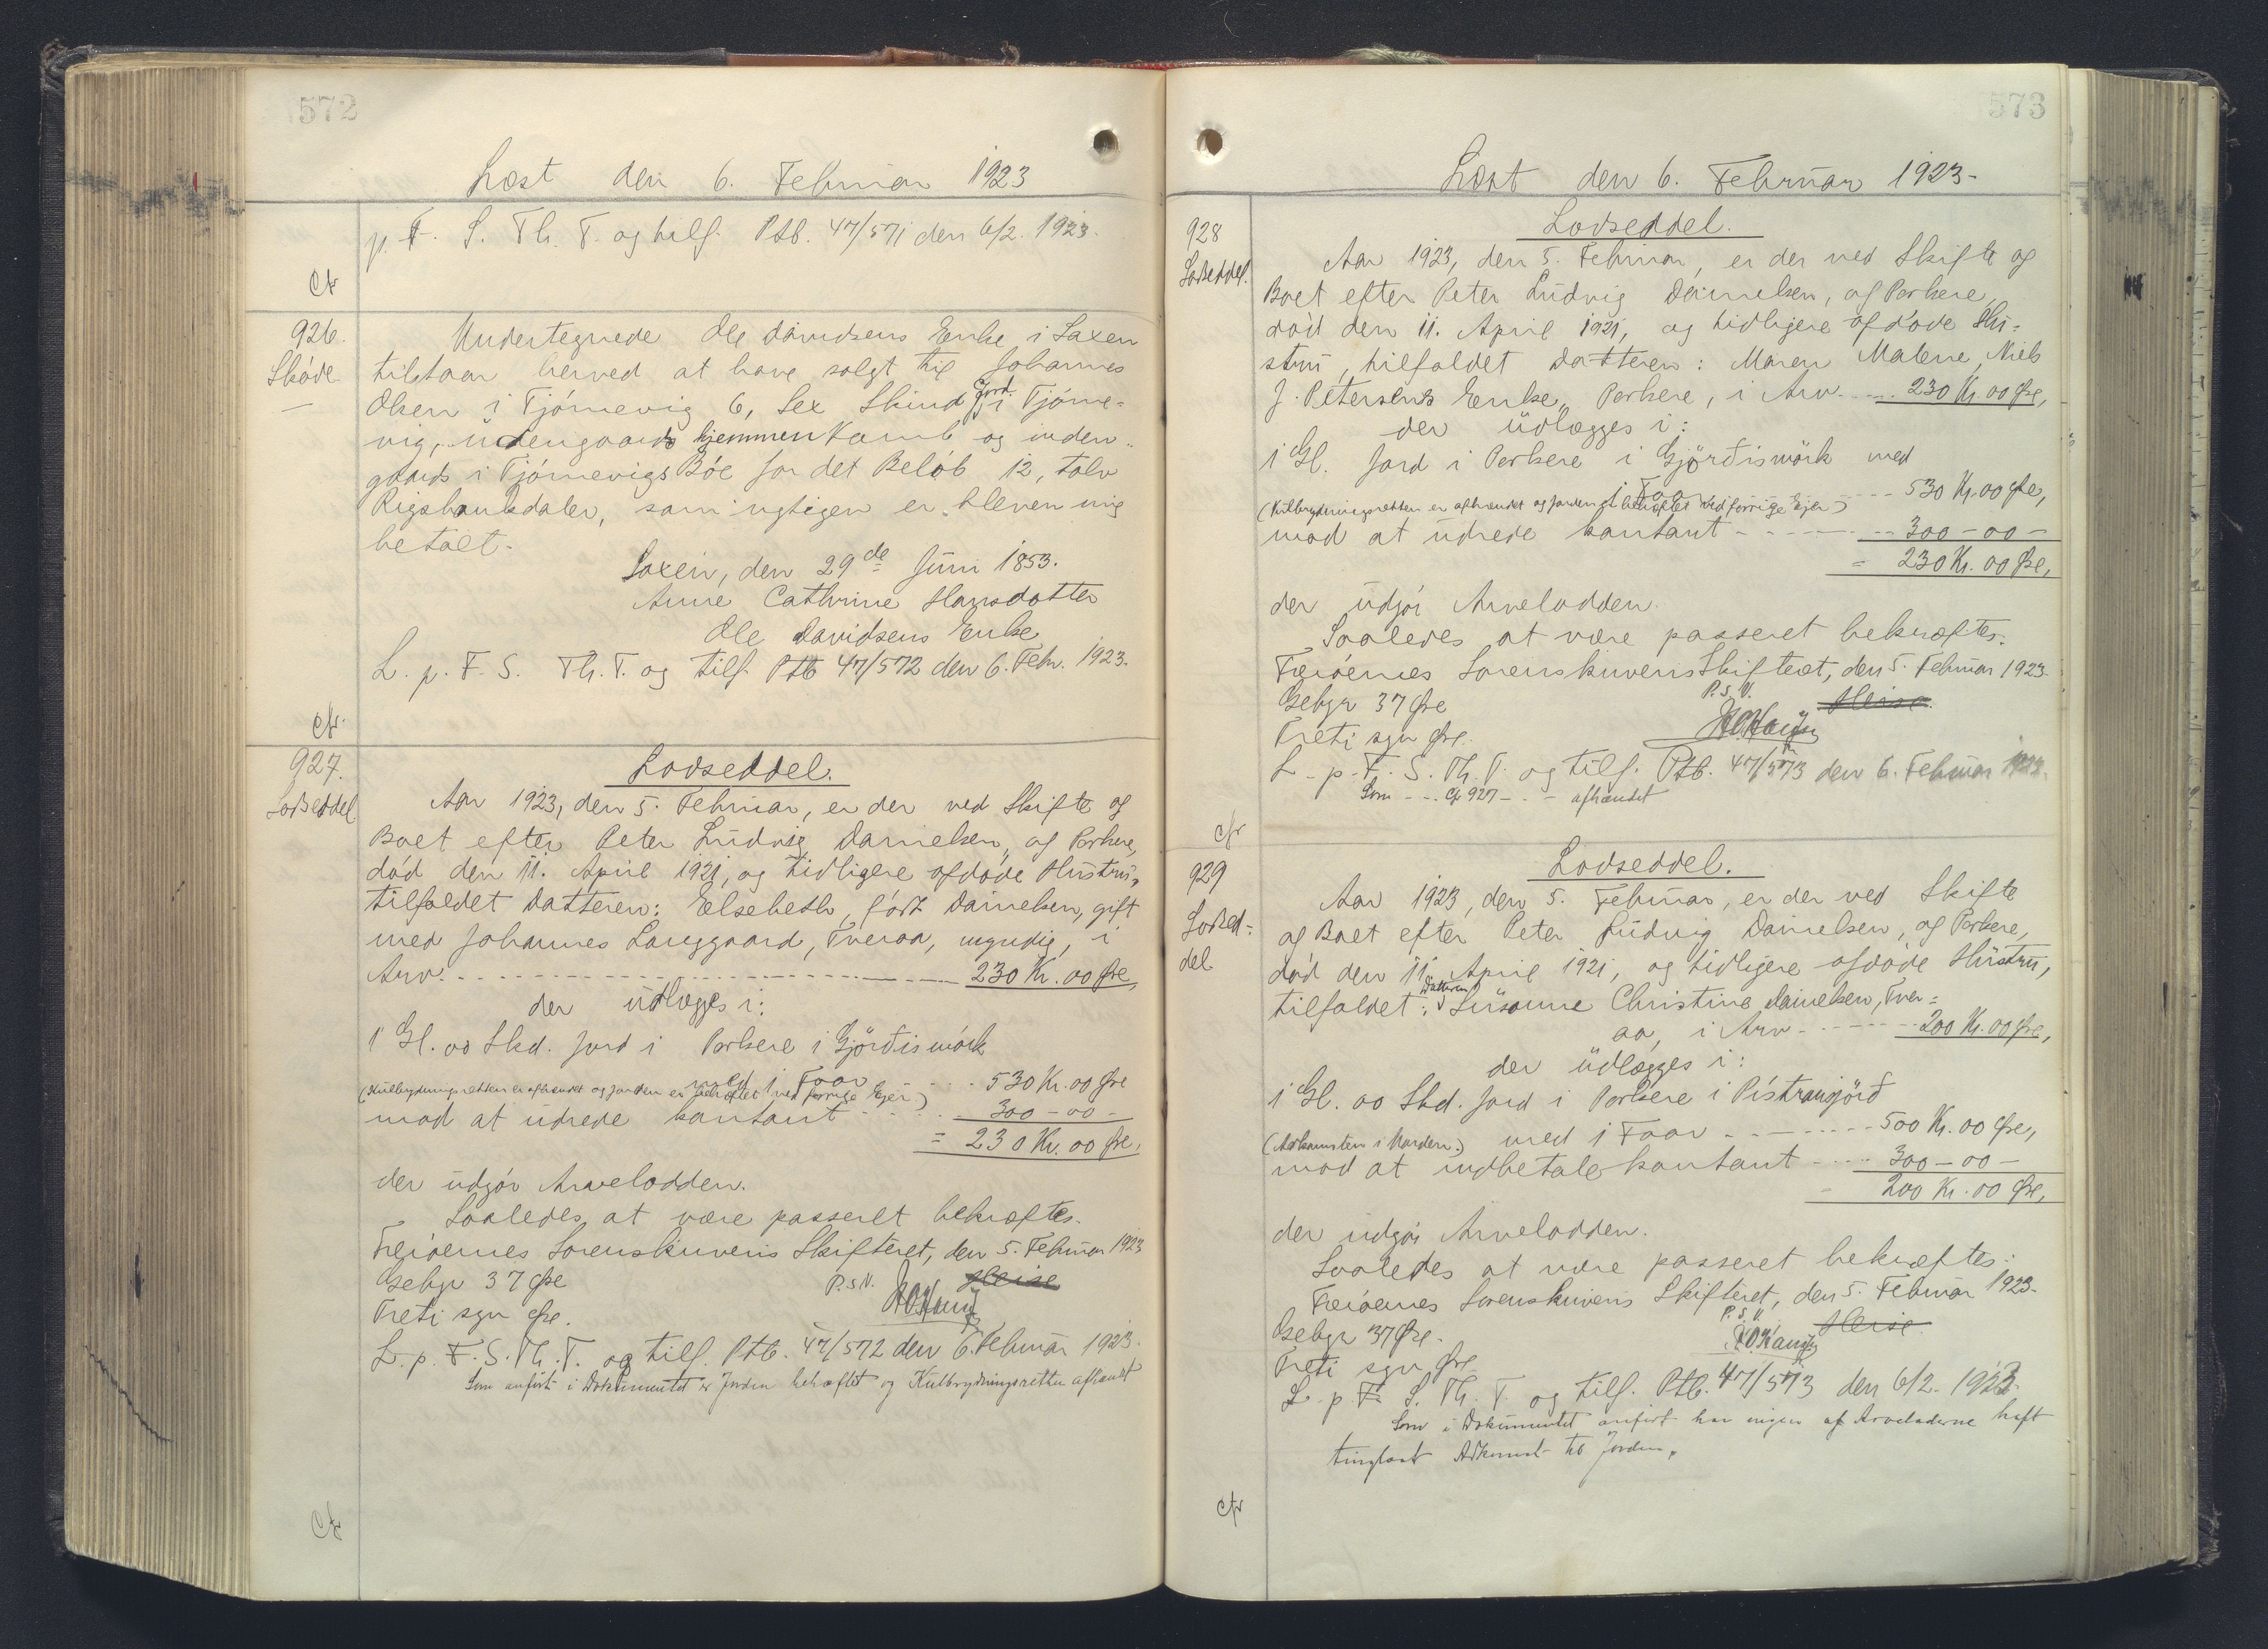 572
Læst den 6. Februar 1923
p. F. S. Th. T. og tilf. Ptb. 47/571 den 6/2. 1923.
Cfr
926.
Skøde
Undertegnede Ole Davidsens Enke i Saxen
tilstaar herved at have solgt til Johannes
Olsen i Tjørnevig 6, Sex Skind Jord i Tjørne-
vig, udengaards hjemmen Kamb og inden-
gaards i Tjørnevigs Bøe for det Beløb 12, tolv
Rigsbankdaler, som rigtigen er bleven mig
betalt.
Saxen, den 29de Juni 1853.
Anne Cathrine Hansdatter
Ole Davidsens Enke
L. p. F. S. Th. T. og tilf. Ptb 47/572 den 6. Febr. 1923.
Cfr.
927.
Lodseddel
Lodseddel.
Aar 1923, den 5. Februar, er der ved Skifte og
Boet efter Peter Ludvig Danielsen, af Porkere,
død den 11. April 1921, og tidligere afdøde Hustru,
tilfaldet Datteren: Elsebeth, født Danielsen, gift
med Johannes Langgaard, Tveraa, myndig, i
Arv 230 Kr. 00 Øre,
der udlægges i:
1 Gl. 00 Skd. Jord i Porkere i Gjørðismörk
med 1 Faar 530 Kr. 00 Øre
(Kulbrydningsretten er afhændet og Jorden er behæftet ved forrige Ejer)
mod at udrede kontant 300 - 00 -
= 230 Kr. 00 Øre,
der udgør Arvelodden.
Saaledes at være passeret bekræftes.
Færøernes Sorenskriveris Skifteret, den 5. Februar 1923
Gebyr 37 Øre P.S.V. Heise
Treti syv Øre.
L. p. F. S. Th. T. og tilf. Ptb. 47/572 den 6. Februar 1923.
Som anført i Dokumentet er Jorden behæftet og Kulbrydningsretten afhændet
Cfr
573
Læst den 6. Februar 1923-
928
Lodseddel.
Lodseddel.
Aar 1923, den 5. Februar, er der ved Skifte og
Boet efter Peter Ludvig Danielsen, af Porkere,
død den 11. April 1921, og tidligere afdøde Hu-
stru, tilfaldet Datteren: Maren Malene, Niels
J. Petersens Enke, Porkere, i Arv 230 Kr 00 Øre,
der udlægges i:
1 Gl. Jord i Porkere i Gjørðismörk med
1 Faar 530 Kr. 00 Øre,
(Kulbrydningsretten er afhændet og Jorden er behæftet ved forrige Ejer)
mod at udrede kontant 300 - 00 -
= 230 Kr. 00 Øre,
der udgør Arvelodden.
Saaledes at være passeret bekræftes.
Færøernes Sorenskriveris Skifteret, den 5. Februar 1923.
Gebyr 37 Øre P.S.V. Heise
Treti syv Øre.
L. p. F. S. Th. T. og tilf. Ptb. 47/573 den 6. Februar 1923.
Som - - - Cfr 927 - - - afhændet
Cfr
929
Lodsed-
del
Lodseddel.
Aar 1923, den 5. Februar, er der ved Skifte
og Boet efter Peter Ludvig Danielsen, af Porkere,
død den 11. April 1921, og tidligere afdøde Hustru,
tilfaldet: Datteren Susanne Christine Danielsen, Tver-
aa, i Arv 200 Kr. 00 Øre,
der udlægges i:
1 Gl. 00 Skd. Jord i Porkere i Pístranjørð
med 1 Faar 500 Kr. 00 Øre,
(Adkomsten i Orden.)
mod at indbetale kontant 300 - 00 -
200 Kr. 00 Øre,
der udgør Arvelodden.
Saaledes at være passeret bekræftes:
Færøernes Sorenskriveris Skifteret, den 5. Februar 1923.
Gebyr 37 Øre. P.S.V. Heise
Treti syv Øre
L. p. F. S. Th. T. og tilf. Ptb. 47/573 den 6/2. 1923.
Som i Dokumentet anført har ingen af Arveladerne haft
tinglæst Adkomst til Jorden.
Cfr